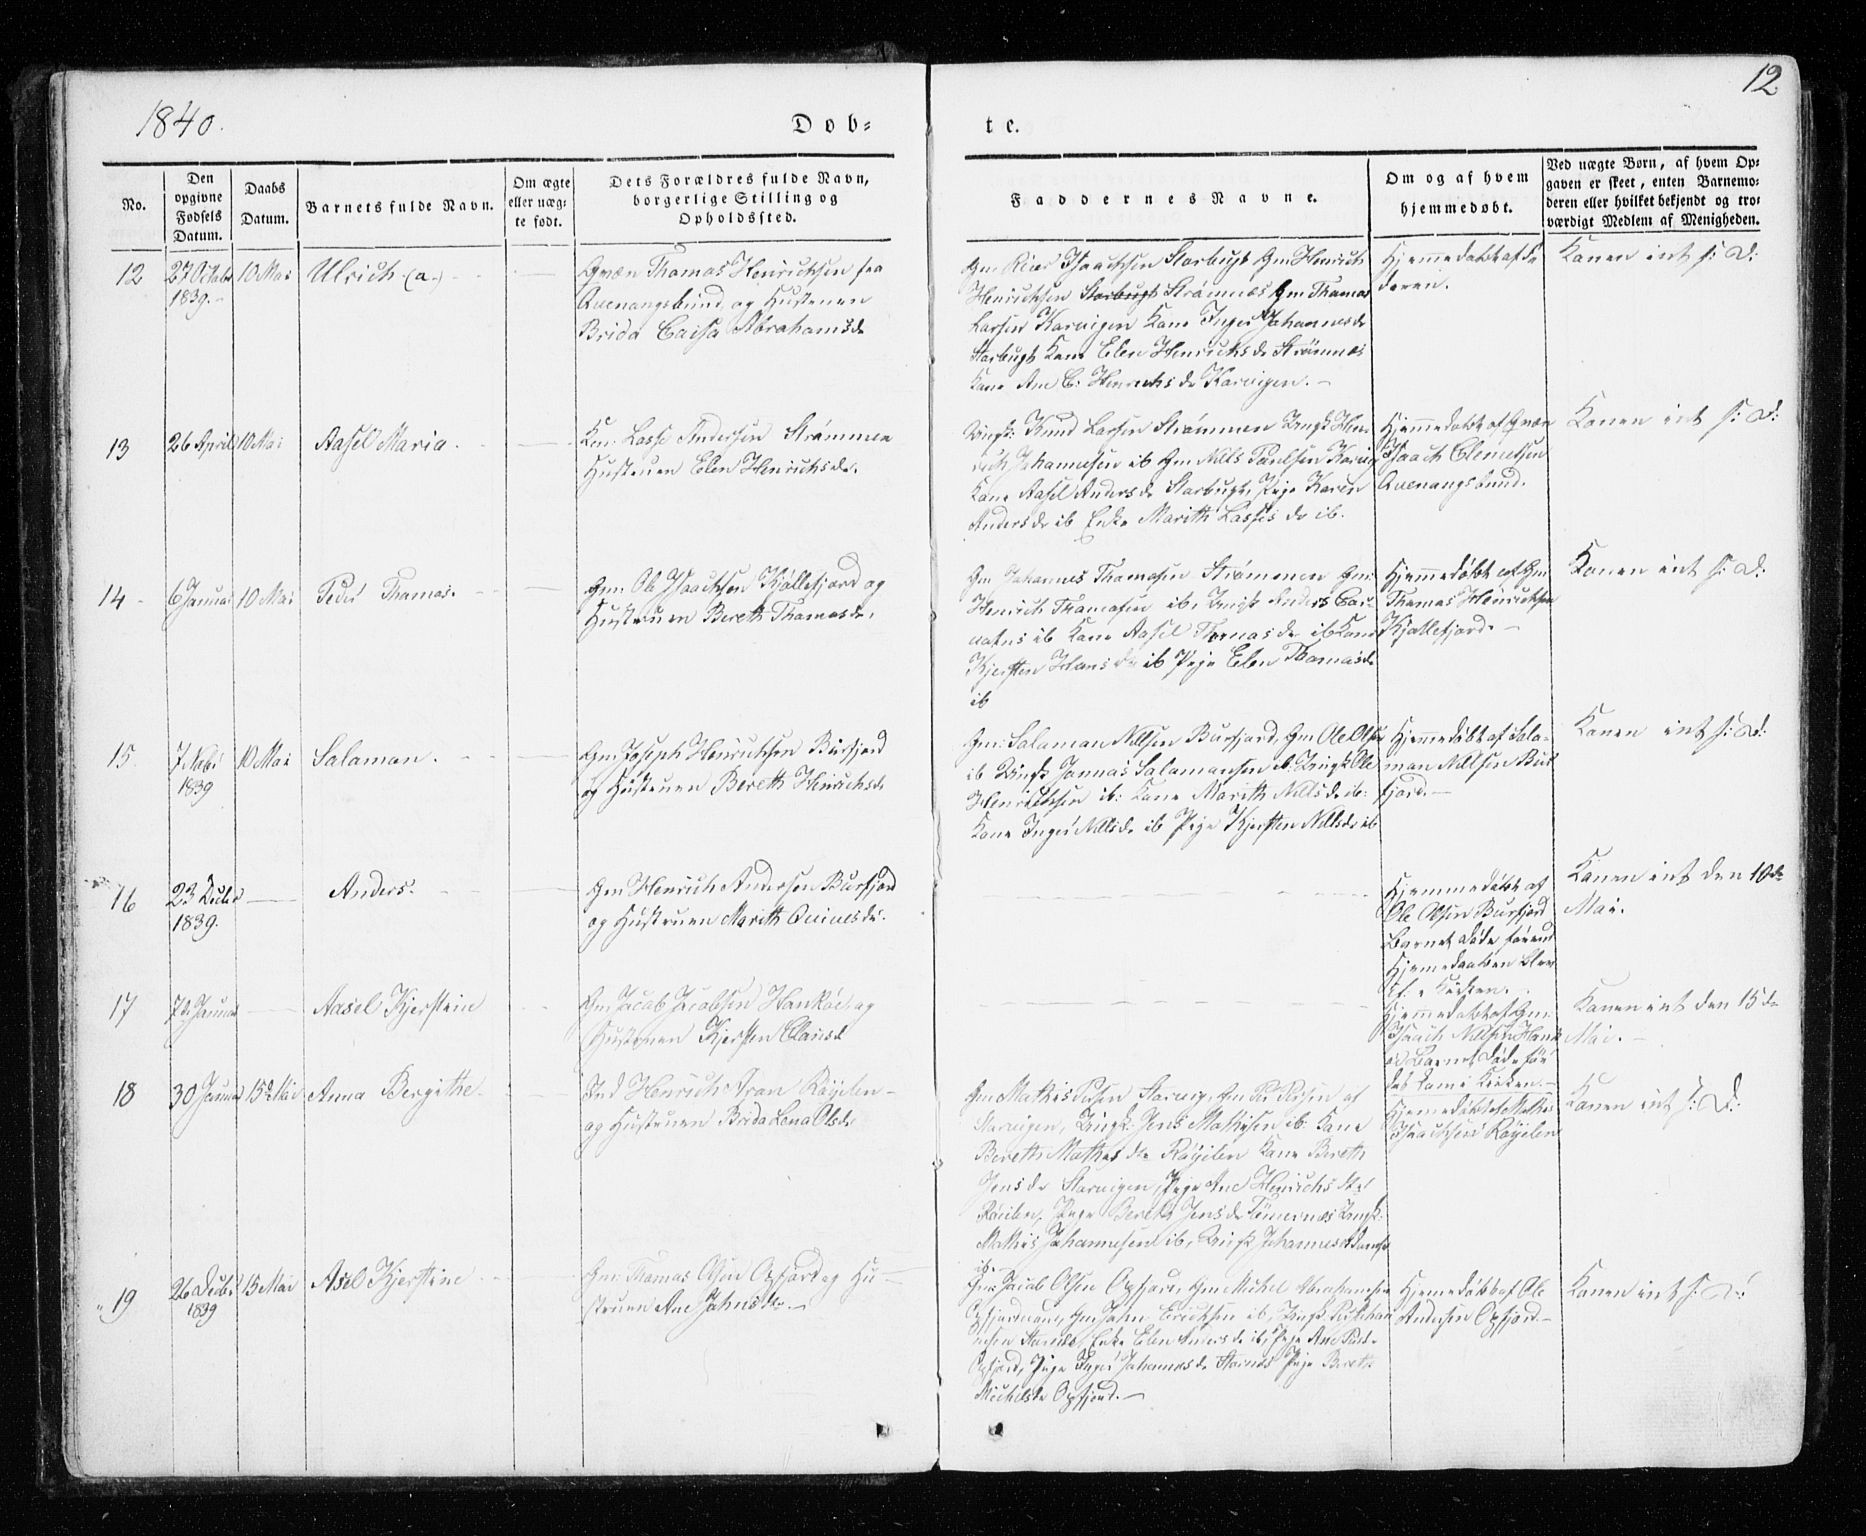 1840.
12
Døb=
te.
No.
Den opgivne Fødsels Datum.
Daabs Datum.
Barnets fulde Navn.
Om ægte eller uæg- te født.
Dets Forældres fulde Navn, borgerlige Stilling og Opholdssted.
Faddernes Navne.
Om og af hvem hjemmedøbt.
Ved uægte Børn, af hvem Op- gaven er skeet, enten Barnemo- deren eller hvilket bekjendt og tro- værdigt Medlem af Menigheden.
12
27 Octobr 1839.
10 Mai
Ulrich (a.)
Qvæn Thomas Henrichsen fra
Qvenangsbund og Hustruen
Brida Caisa Abrahamsd.
Isaachsen Storbugt Gm Henrich
Henrichsen Storbugt Strømnæs Gm Thomas
Larsen Karvigen Kone Inger Johannesd.
Storbugt Kone Elen Henrichsd. Strømnæs
Kone Ane C: Henrichsd. Karvigen.
Hjemmedøbt af Fa-
deren.
Konen int s: D:
13
26 April
10 Mai
Aasel Maria.
Lasse Andersen Strømmen
Hustruen Elen Henrichsd.
Ungk: Knud Larsen Strømmen Ungk Hen-
rich Johannesen ib Gm Nils Poulsen Karvig
Kone Aasel Andersd. Storbugt, Pige Karen
Andersd. ib Enke Marith Lassesd. ib.
Hjemmedøbt af Qvæn
Isaach Clemetsen
Qvenangsbund.
Konen int s: D:
14
6 Januar
10 Mai
Peder Thomas.
Gm: Ole Isaachsen Kjøllefjord og
Hustruen Bereth Thomasd.
Gm Johannes Thomasen Strømmen Gm:
Henrich Thomasen ib, Ungk Anders
ib Kone Aasel Thomasd. ib Kone
Kjersten Hansd. ib Pige Elen Thomasd.
ib
Hjemmedøbt af Gm
Thomas Henrichsen
Kjøllefjord.
Konen int s: D:
15.
7 Nobr 1839
10 Mai
Salamon.
Gm: Joseph Henrichsen Burfjord
og Hustruen Bereth Henrichsd.
Gm: Salamon Nilsen Burfjord, Gm Ole Olsen
ib Ungk Jonnas Salamonsen ib: Ungk Ole
Henrichsen ib: Kone Marith Nilsd. ib:
Kone Inger Nilsd. ib Pige Kjersten Nilsd. ib
Hjemmedøbt af Sala-
mon Nilsen Bur
fjord.
Konen int s: D:
16
23 Decbr 1839.
Anders.
Gm: Henrich Andersen Burfjord
og Hustruen Marith
Hjemmedøbt af
Ole Olsen Burfjord
Barnet døde førend
Hjemmedaaben blev
Kirken.
Konen int den 10de
Mai.
17
7de Januar
Aasel Kjerstine
Gm: Jacob Jacobsen og
Hustruen Kjersten Clausd.
Hjemmedøbt af Gm:
Isaach Nilsen
Barnet døde før
det kom i Kirken.
Konen int den 15de
Mai.
18
30 Januar
15de Mai
Anna Bergithe.
Ind Henrich Røyelen
og Hustruen Brida Lena Olsd.
Gm: Mathis Persen
Ungk: Jens Mathisen ib: Kone
Bereth Mathisd. Røyelen Kone Bereth
Jensd. Pige Ane Henrichsd.
Pige Bereth Jensd. Ungk:
Mathis Johannesen ib, Ungk Johannes
ib.
Hjemmedøbt af Mathis
Isaachsen Røyelen
Konen int s: D:
19
26 Decbr 1839
15 Mai
Asel Kjerstine
Gm: Thomas Olsen Oxfjord og Hu-
struen Ane Johnsd.
Gm: Jacob Olsen Oxfjord, Gm Michel Abrahamsen
Gm John Erichsen ib, Ungk
Enke Elen Andersd. ib, Pige Ane
Oxfjord, Pige Inger Johannesd. Pige Bereth
Michelsd. Oxfjord.
Hjemmedøbt af Ole
Andersen Oxfjord.
Konen int s: D: